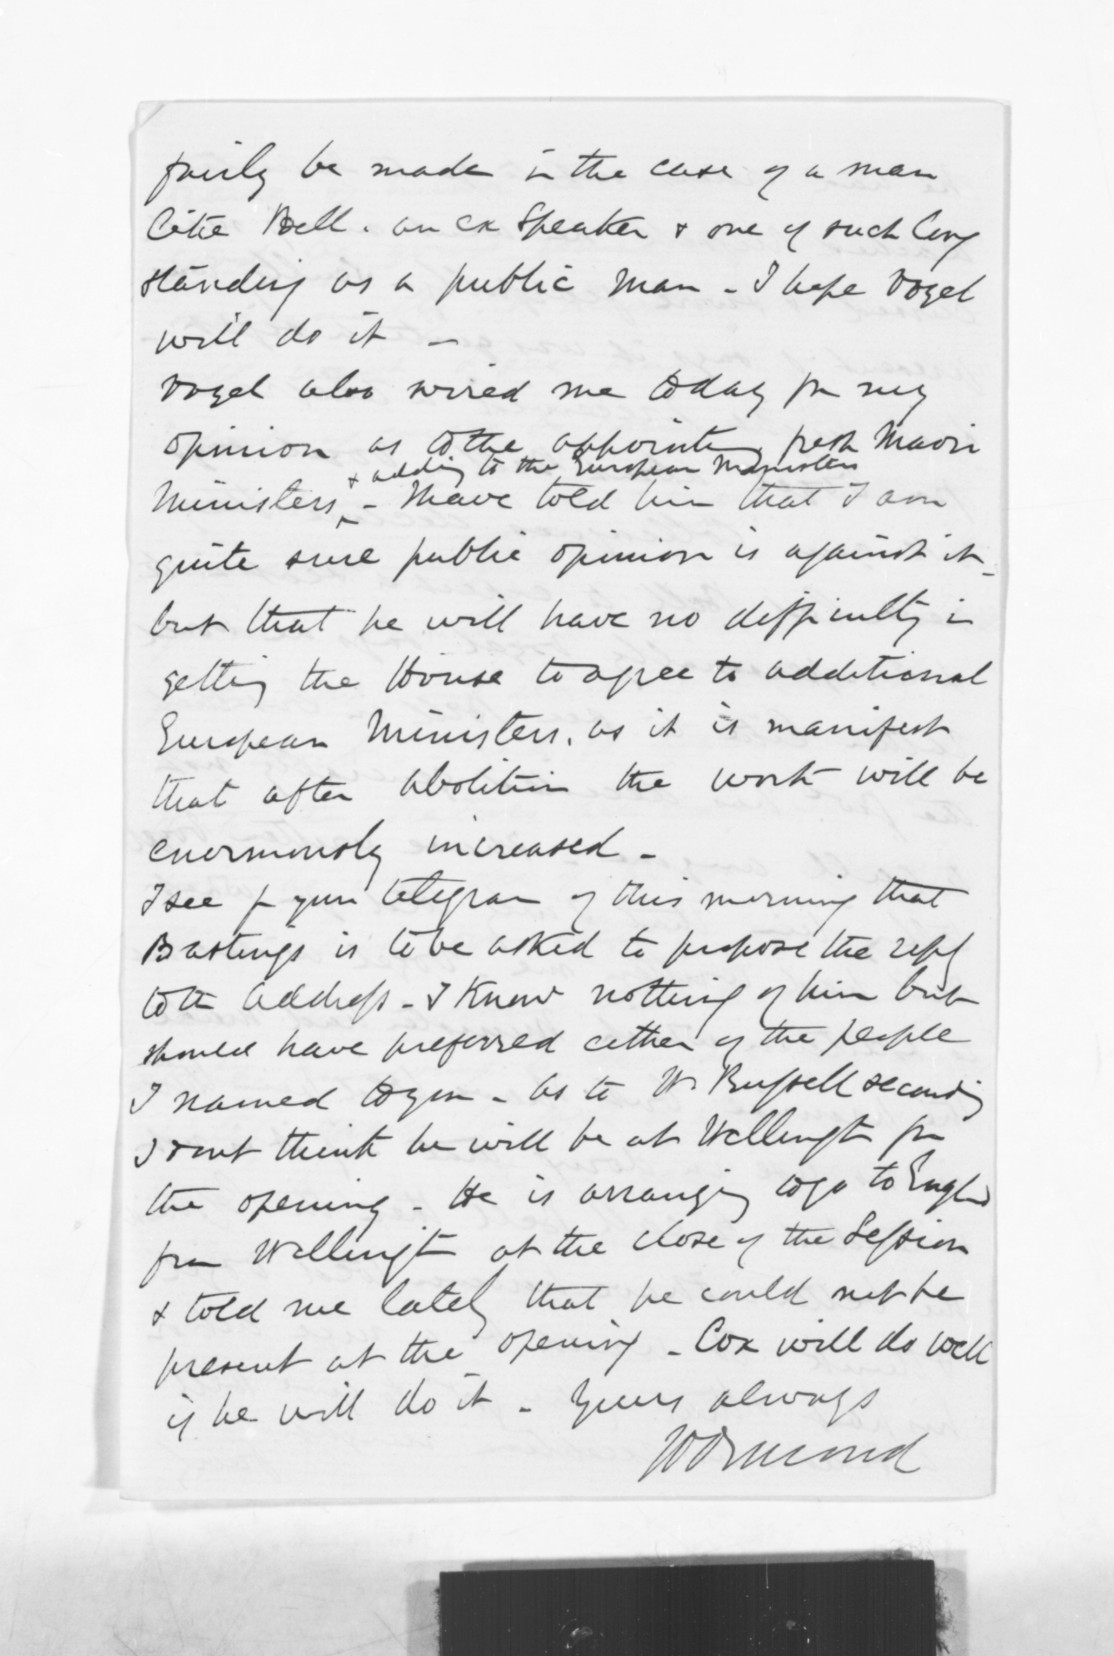 fairly be made in the case of a man
like Bell. an ex Speaker & one of such long
standing as a public man - I hope Vogel
will do it -
Vogel also wired me today for my
opinion as to the appointing fresh Maori
& adding to the European Ministers
Ministers - I have told him that I am
quite sure public opinion is against it -
but that he will have no difficulty in
getting the House to agree to additional
European Ministers. as it is manifest
that after abolition the work will be
enormously increased -
I see fr your telegram of this morning that
Bastings is to be asked to propose the reply
to the Address - I know nothing of him but
should have preferred either of the people
I named to you - As to W. Russell seconding
I dont think he will be at Wellington for
the opening - He is arranging to go to England
from Wellington at the close of the Session
& told me lately that he could not be
present at the opening - Cox will do well
if he will do it - Yours always
JD Ormond